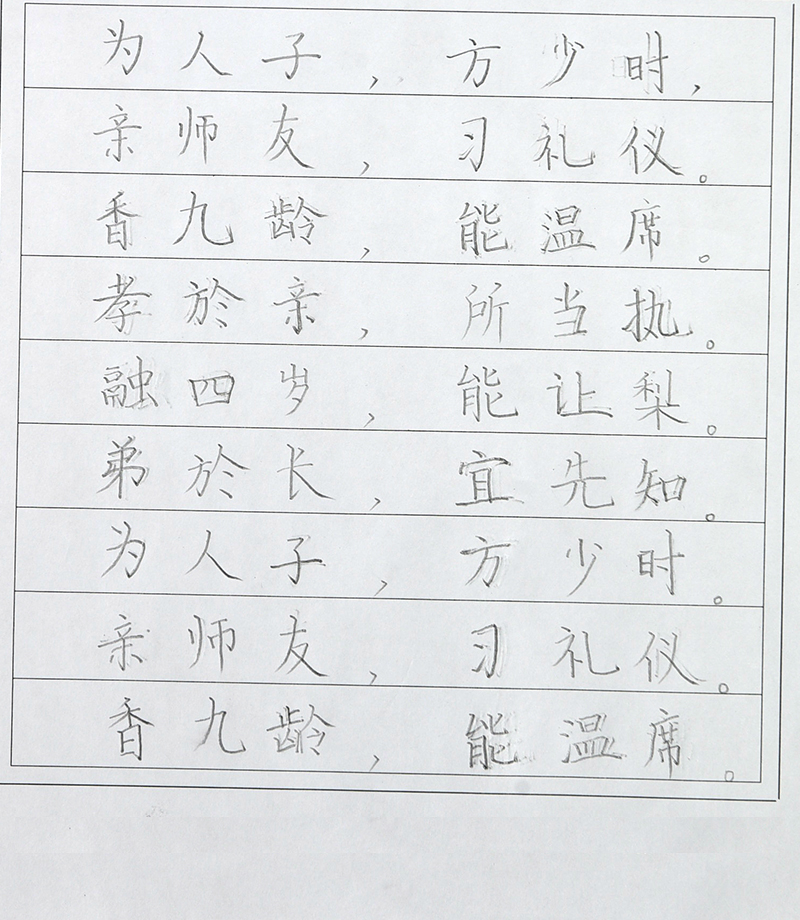 为人子，方少时，
亲师友，习礼仪。
香九龄，能温席。
孝於亲，所当执。
融四岁，能让梨。
弟於长，宜先知。
为人子，方少时。
亲师友，习礼仪。
香九龄，能温席。